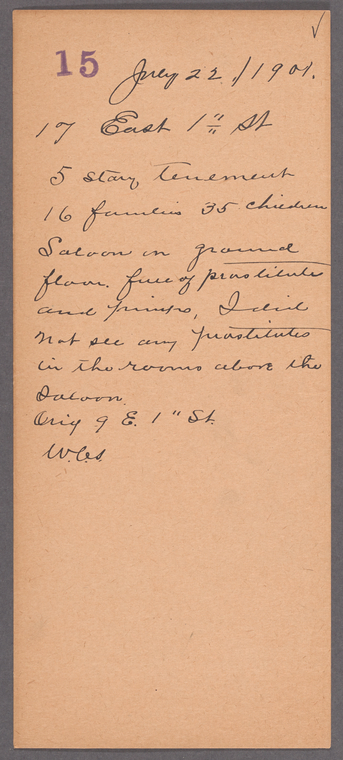 15
July 22,/1901.
17 East 1" St
5 story tenement
16 families 35 children
Saloon on ground
floor. full of prostitute
and pimps, I did
not see any prostitutes
in the rooms above the
Saloon.
Orig 9 E. 1" St.